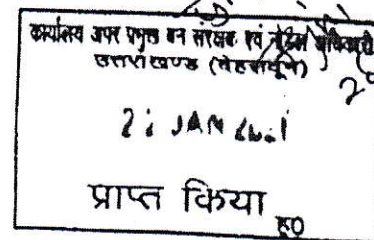 कार्यालय अपर प्रमुख वन संरक्षक एवं नोडल अधिकारी
उत्तराखण्ड (देहरादून)
JAN
प्राप्त किया
ह0